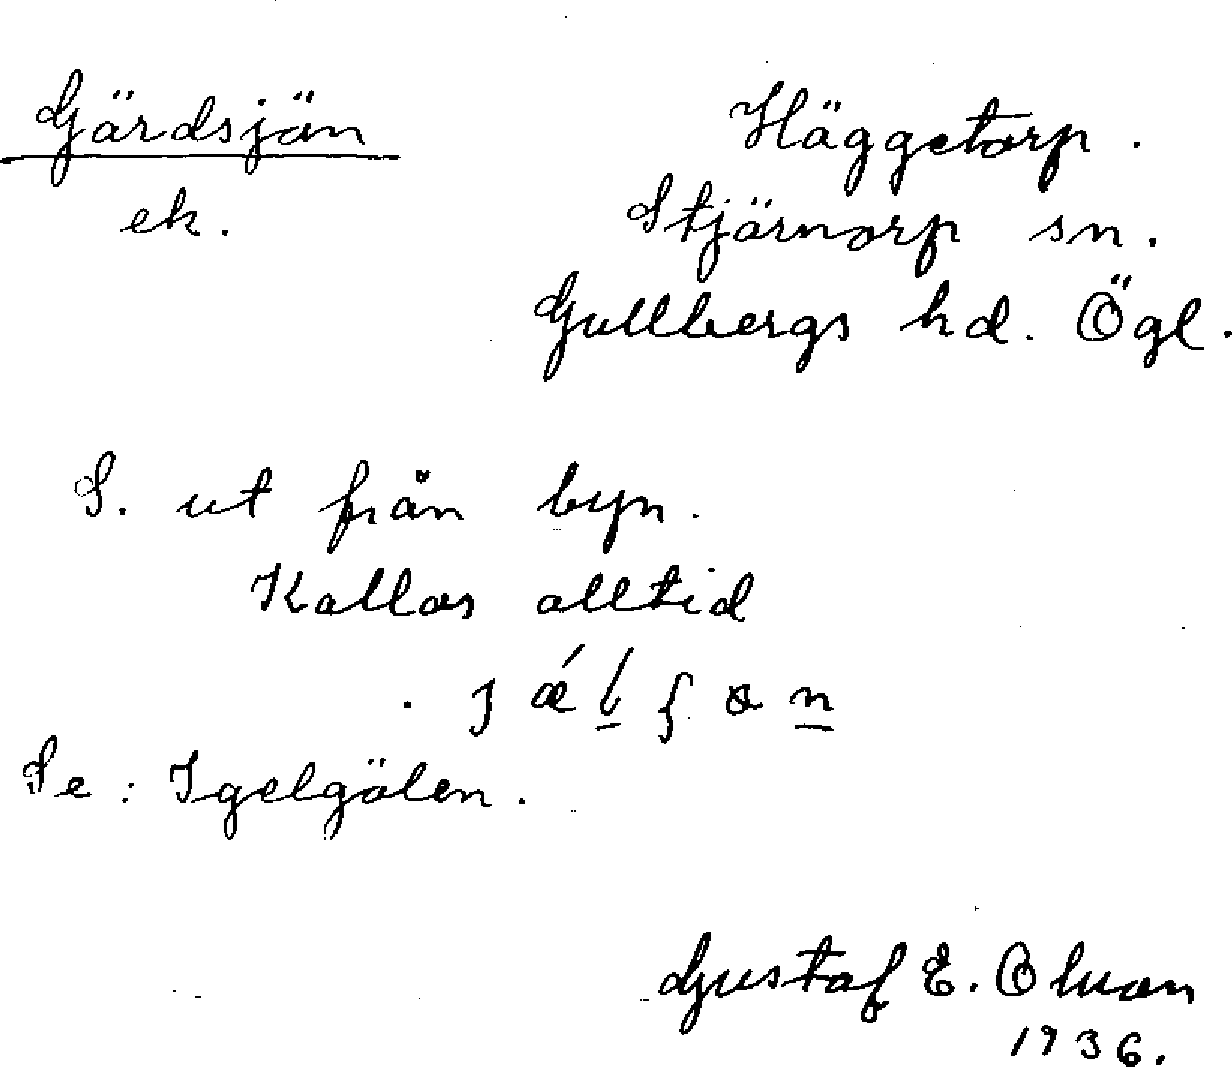 Gärdsjön
ek.
Häggetorp.
Stjärnorp sn.
Gullbergs hd. Ögl.
S. ut från byn.
Kallas alltid
Se: Igelgölen.
Gustaf E.
1936.